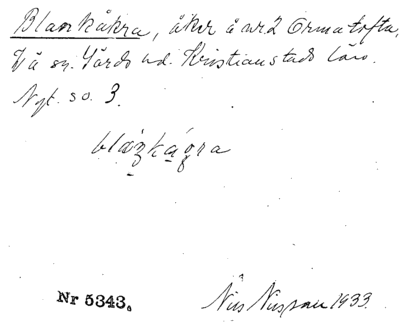 Blankåkra, åker å nr 2 Ormatofta,
Vä sn. Gärds hd. Kristianstads län.
Nyt. so. 3.
blaŋkågra
Nr 5343.
Nils 1933.